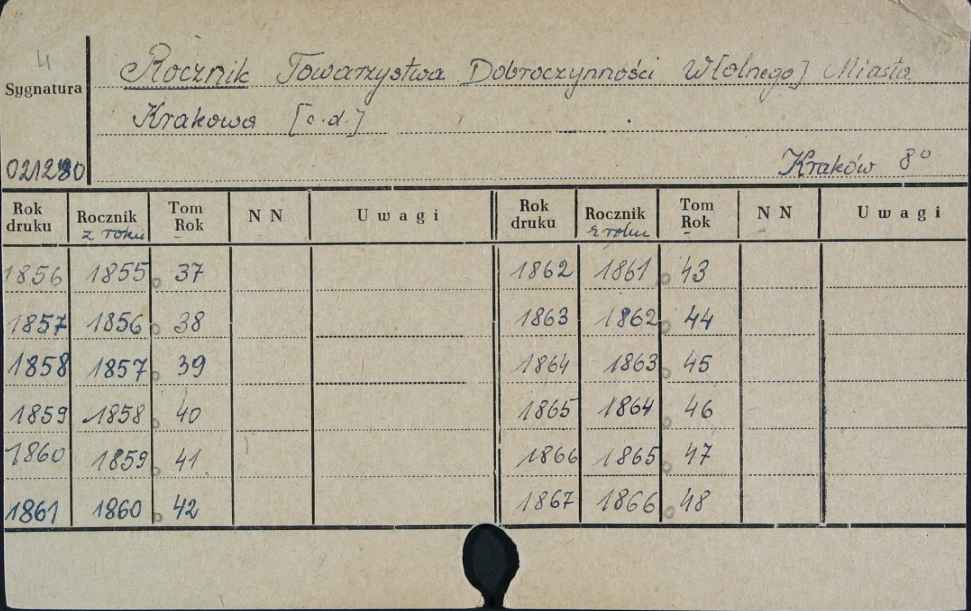 4
Sygnatura
Rocznik Towarzystwa Dobroczynności W[olnego] Miasta
Krakowa [c.d.]
021280
Kraków 8°
Rok druku Rocznik z roku Tom Rok N N Uwagi Rok druku Rocznik z roku Tom Rok N N Uwagi
1856 1855 37 1862 1861 43
1857 1856 38 1863 1862 44
1858 1857 39 1864 1863 45
1859 1858 40 1865 1864 46
1860 1859 41 1866 1865 47
1861 1860 42 1867 1866 48